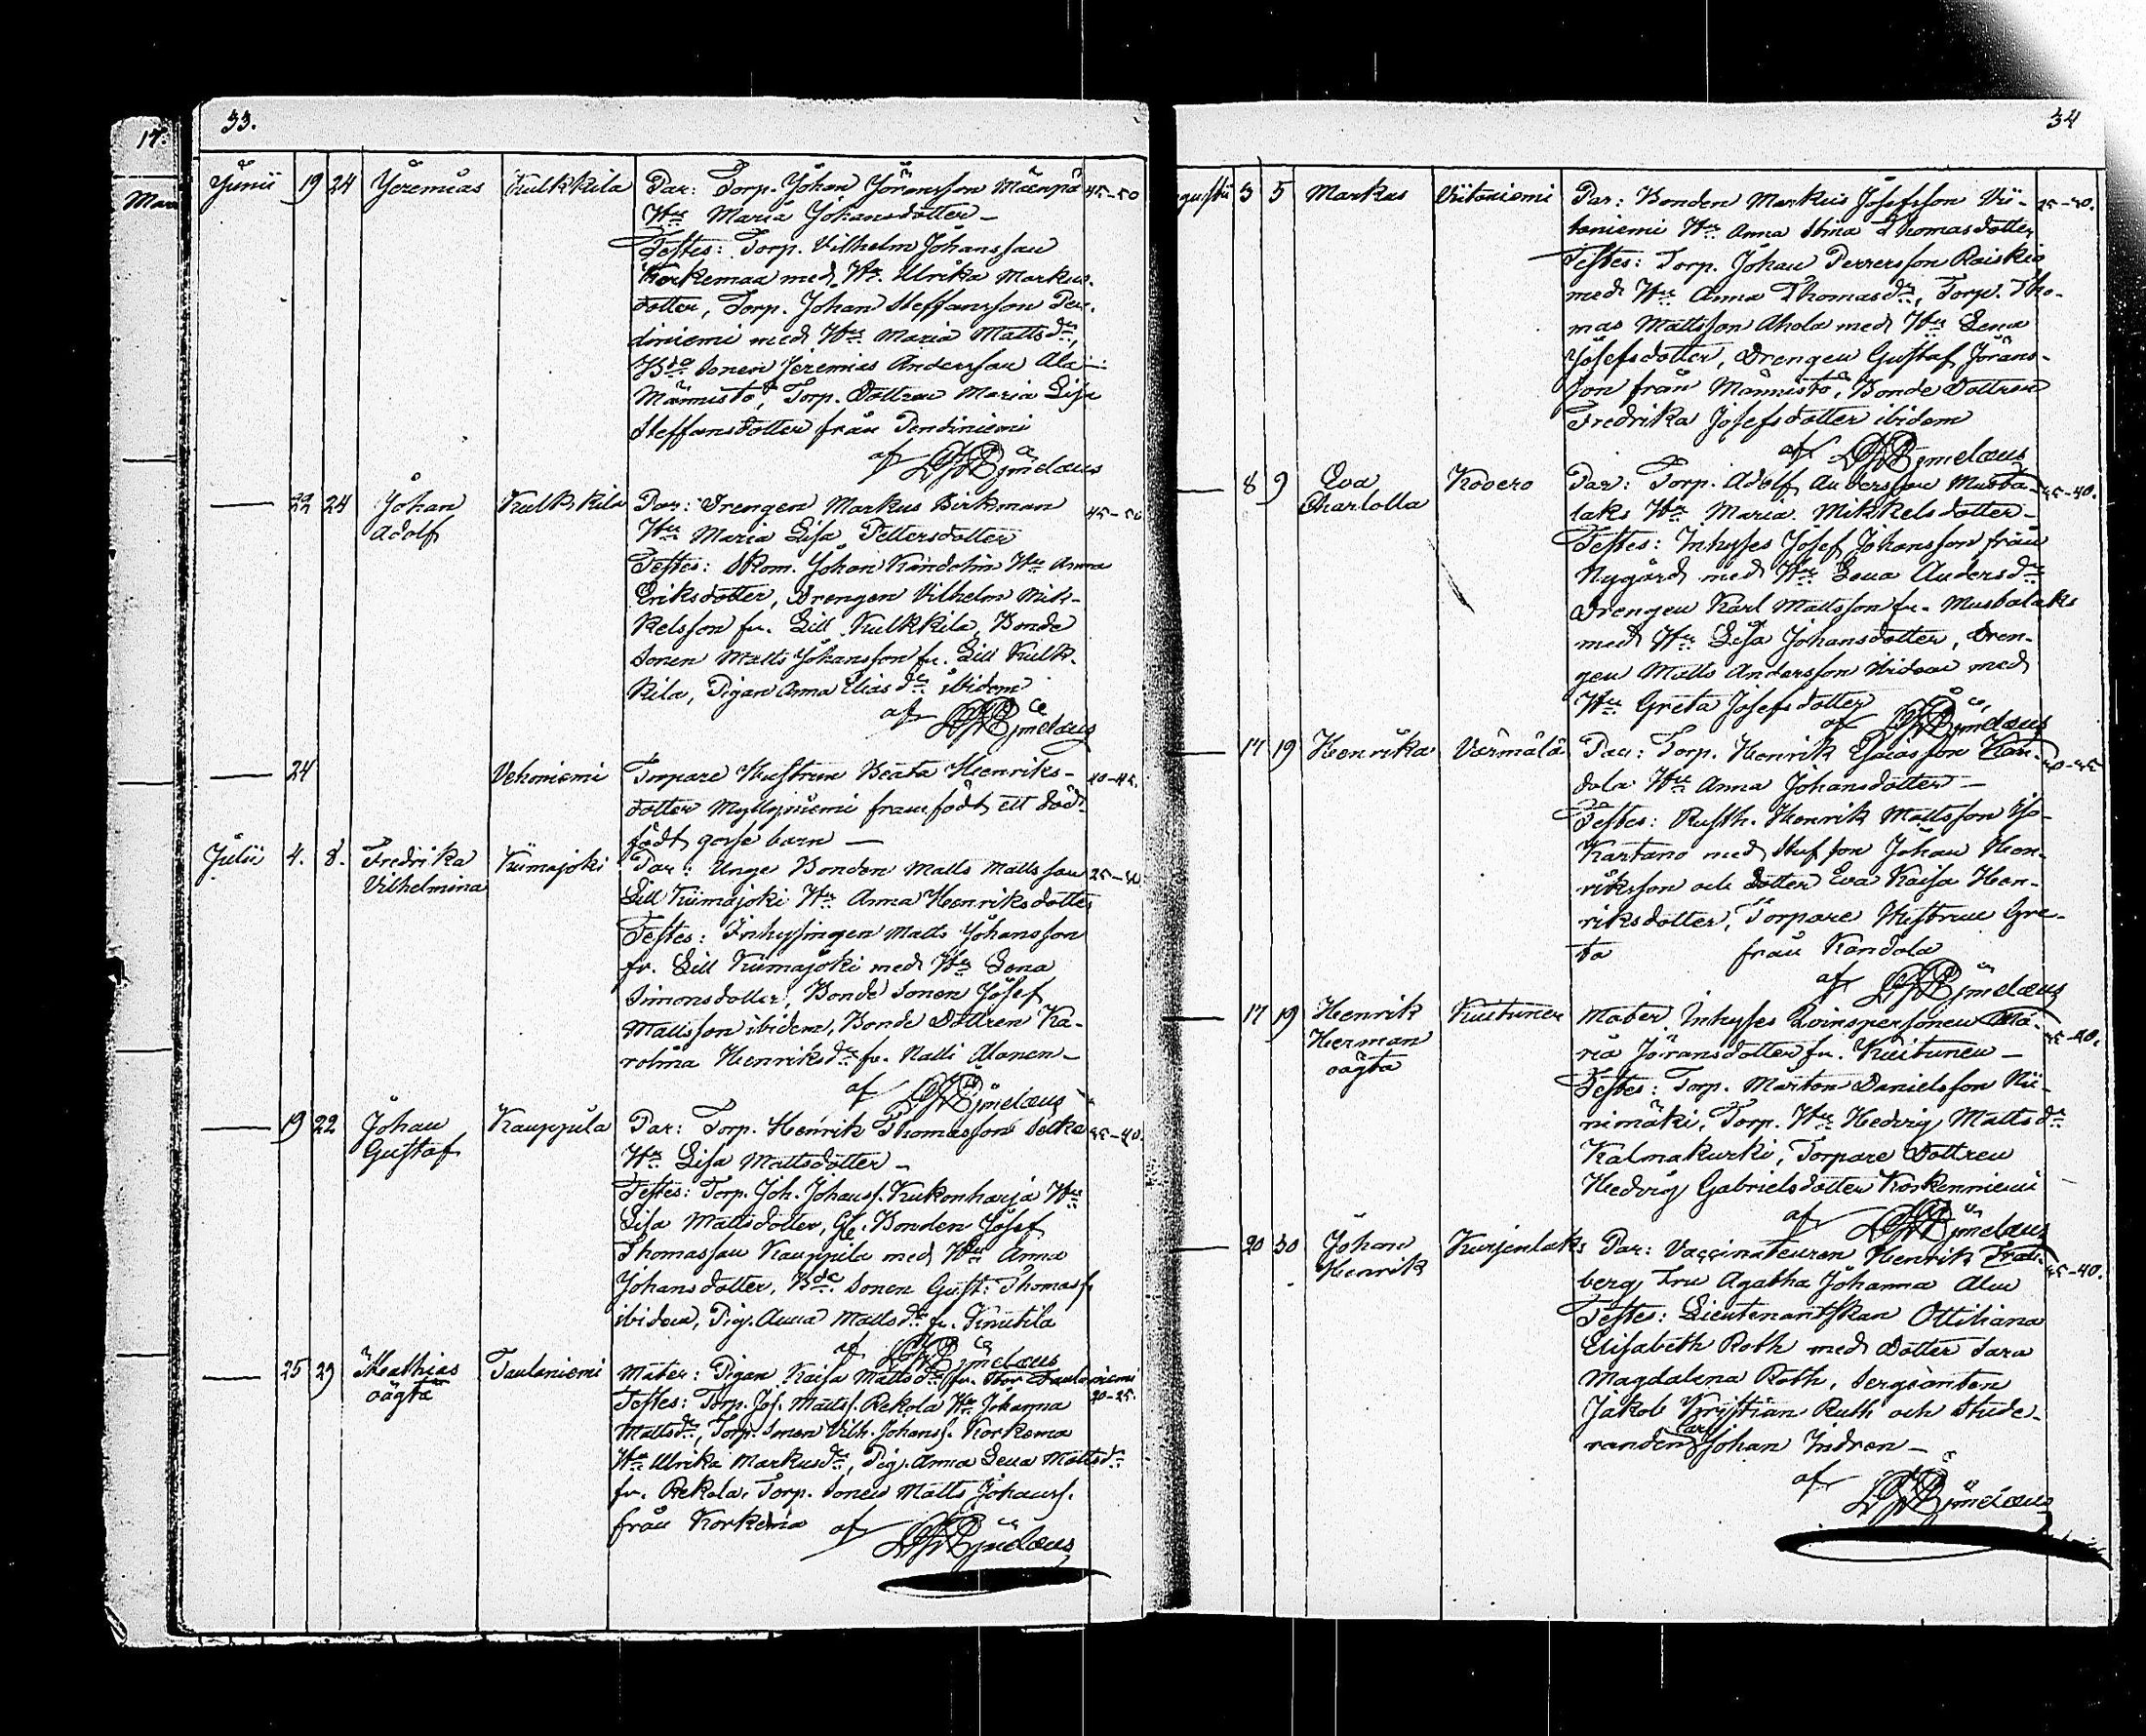 17.
33.
Junii 19 24 Jeremias Kulkkila Par: Torp. Johan Jöransson Mäenpä 45-50
Hu Maria Johansdotter –
Testes: Torp. Vilhelm Johansson
Korkemaa med Hu Ulrika Markus-
dotter, Torp. Johan Steffansson Pen-
diniemi med Hu Maria Mattsdr,
Bde Sonen Jeremias Andersson Ala-
Männistö, Torp. Dottren Maria Lisa
Steffansdotter från Pendiniemi
af
— 22 24 Johan Adolf Kulkkila Par: Drengen Markus Birkman 45-50
Hu Maria Lisa Pettersdotter
Testes: Skom. Johan Kandolin Hu Anna
Eriksdotter, Drengen Vilhelm Mik-
kelsson fr. Lill Kulkkila, Bonde
Sonen Matts Johansson fr. Lill Kulk-
kila, Pigan Anna Eliasdr ibidem
af
— 24 Vehoniemi Torpare Hustrun Beata Henriks- 40-45.
dotter Myllyniemi framfödt ett död-
född gosse barn —
Julii 4. 8. Fredrika Vilhelmina Kiimajoki Par: Unge Bonden Matts Mattsson 25-30
Lill Kiimajoki Hu Anna Henriksdotter
Testes: Inhysingen Matts Johansson
fr. Lill Kiimajoki med Hu Lena
Simonsdotter, Bonde Sonen Josef
Mattsson ibidem, Bonde Dottren Ka-
rolina Henriksdr fr. Matti Alanen –
af
— 19 22 Johan Gustaf Kauppila Par: Torp. Henrik Thomasson 35-40.
Hu Lisa Mattsdotter –
Testes: Torp. Joh. Johanss. Kukonharja Hu
Lisa Mattsdotter, Gl. Bonden Josef
Thomasson Kauppila med Hu Anna
Johansdotter, Bde Sonen Gust: Thomass.
ibidem, Pig. Anna Mattsdr fr. Knutila
af
— 25 29 Mathias oägta Taulaniemi Mater: Pigan Kaisa Mattsdr fr. Stor Taulaniemi
Testes: Torp. Jos. Mattss. Rekola Hu Johanna 20-25.
Mattsdr, Torp. Sonen Vilh. Johanss. Korkema
Hu Ulrika Markusdr, Pig. Anna Lena Mattsdr
fr. Rekola, Torp. Sonen Matts Johanss.
från Korkema af
34
gusti 3 5 Markus Viitaniemi Par: Bonden Markus Josefsson Vii-
taniemi Hu Anna Stina Thomasdotter
Testes: Torp. Johan Perersson Raiskio
med Hu Anna Thomasdr, Torp. Tho-
mas Mattsson Ahola med Hu Lena
Josefsdotter, Drengen Gustaf Jörans-
son från Männistö, Bonde Dottren
Fredrika Josefsdotter ibidem
af
— 8 9 Eva Charlotta Kovero Par: Torp. Adolf Andersson Musta- 35-40.
laks Hu Maria Mikkelsdotter –
Testes: Inhyses Josef Johansson från
Nygård med Hu Lena Andersdr
Drengen Karl Mattsson fr. Mustalaks
med Hu Lisa Johansdotter, Dren-
gen Matts Andersson ibidem med
Hu Greta Josefsdotter
af
— 17 19 Henrika Värmälä Par: Torp. Henrik Esaiasson Kan-
dola Hu Anna Johansdotter –
Testes: Rusth. Henrik Mattsson Iso-
Kartano med Stufson Johan Hen-
riksson och Dotter Eva Kaisa Hen-
riksdotter, Torpare Hustrun Gre-
ta från Kandola
af
— 17 19 Henrik Herman oägta Kuitunen Mater. Inhyses Qvinspersonen Ma-
ria Jöransdotter fr. Kuitunen –
Testes: Torp. Mårten Danielsson Nii-
nimäki, Torp. Hu Hedvig Mattsdr
Kalmakurki, Torpare Dottren
Hedvig Gabrielsdotter Koskenniemi
af
— 20 30 Johan Henrik Kurjenlaks Par: Vaccinateuren Henrik
berg Fru Agatha Johanna Alm
Testes: Lieutenantskan Ottiliana
Elisabeth Roth med Dotter Sara
Magdalena Roth, Sergeanten
Jakob Kristian Ruth och Stude-
randen Carl Johan Indren –
af